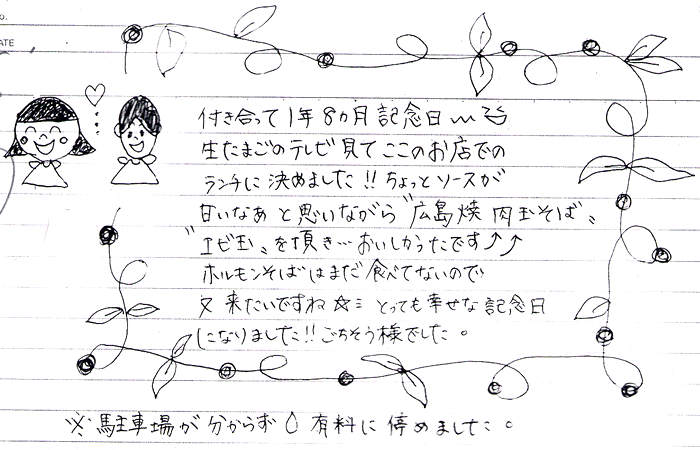 o.
ATE
付き合って1年8カ月記念日〰
生たまごのテレビ見てここのお店での
ランチに決めました!!ちょっとソースが
甘いなあと思いながら〝広島焼 肉玉そば〟
〝エビ玉〟を頂き…おいしかったです↑↑
ホルモンそばはまだ食べてないので
又来たいですね☆ミ とっても幸せな記念日
になりました!!ごちそう様でした。
※駐車場が分からず 有料に停めました。